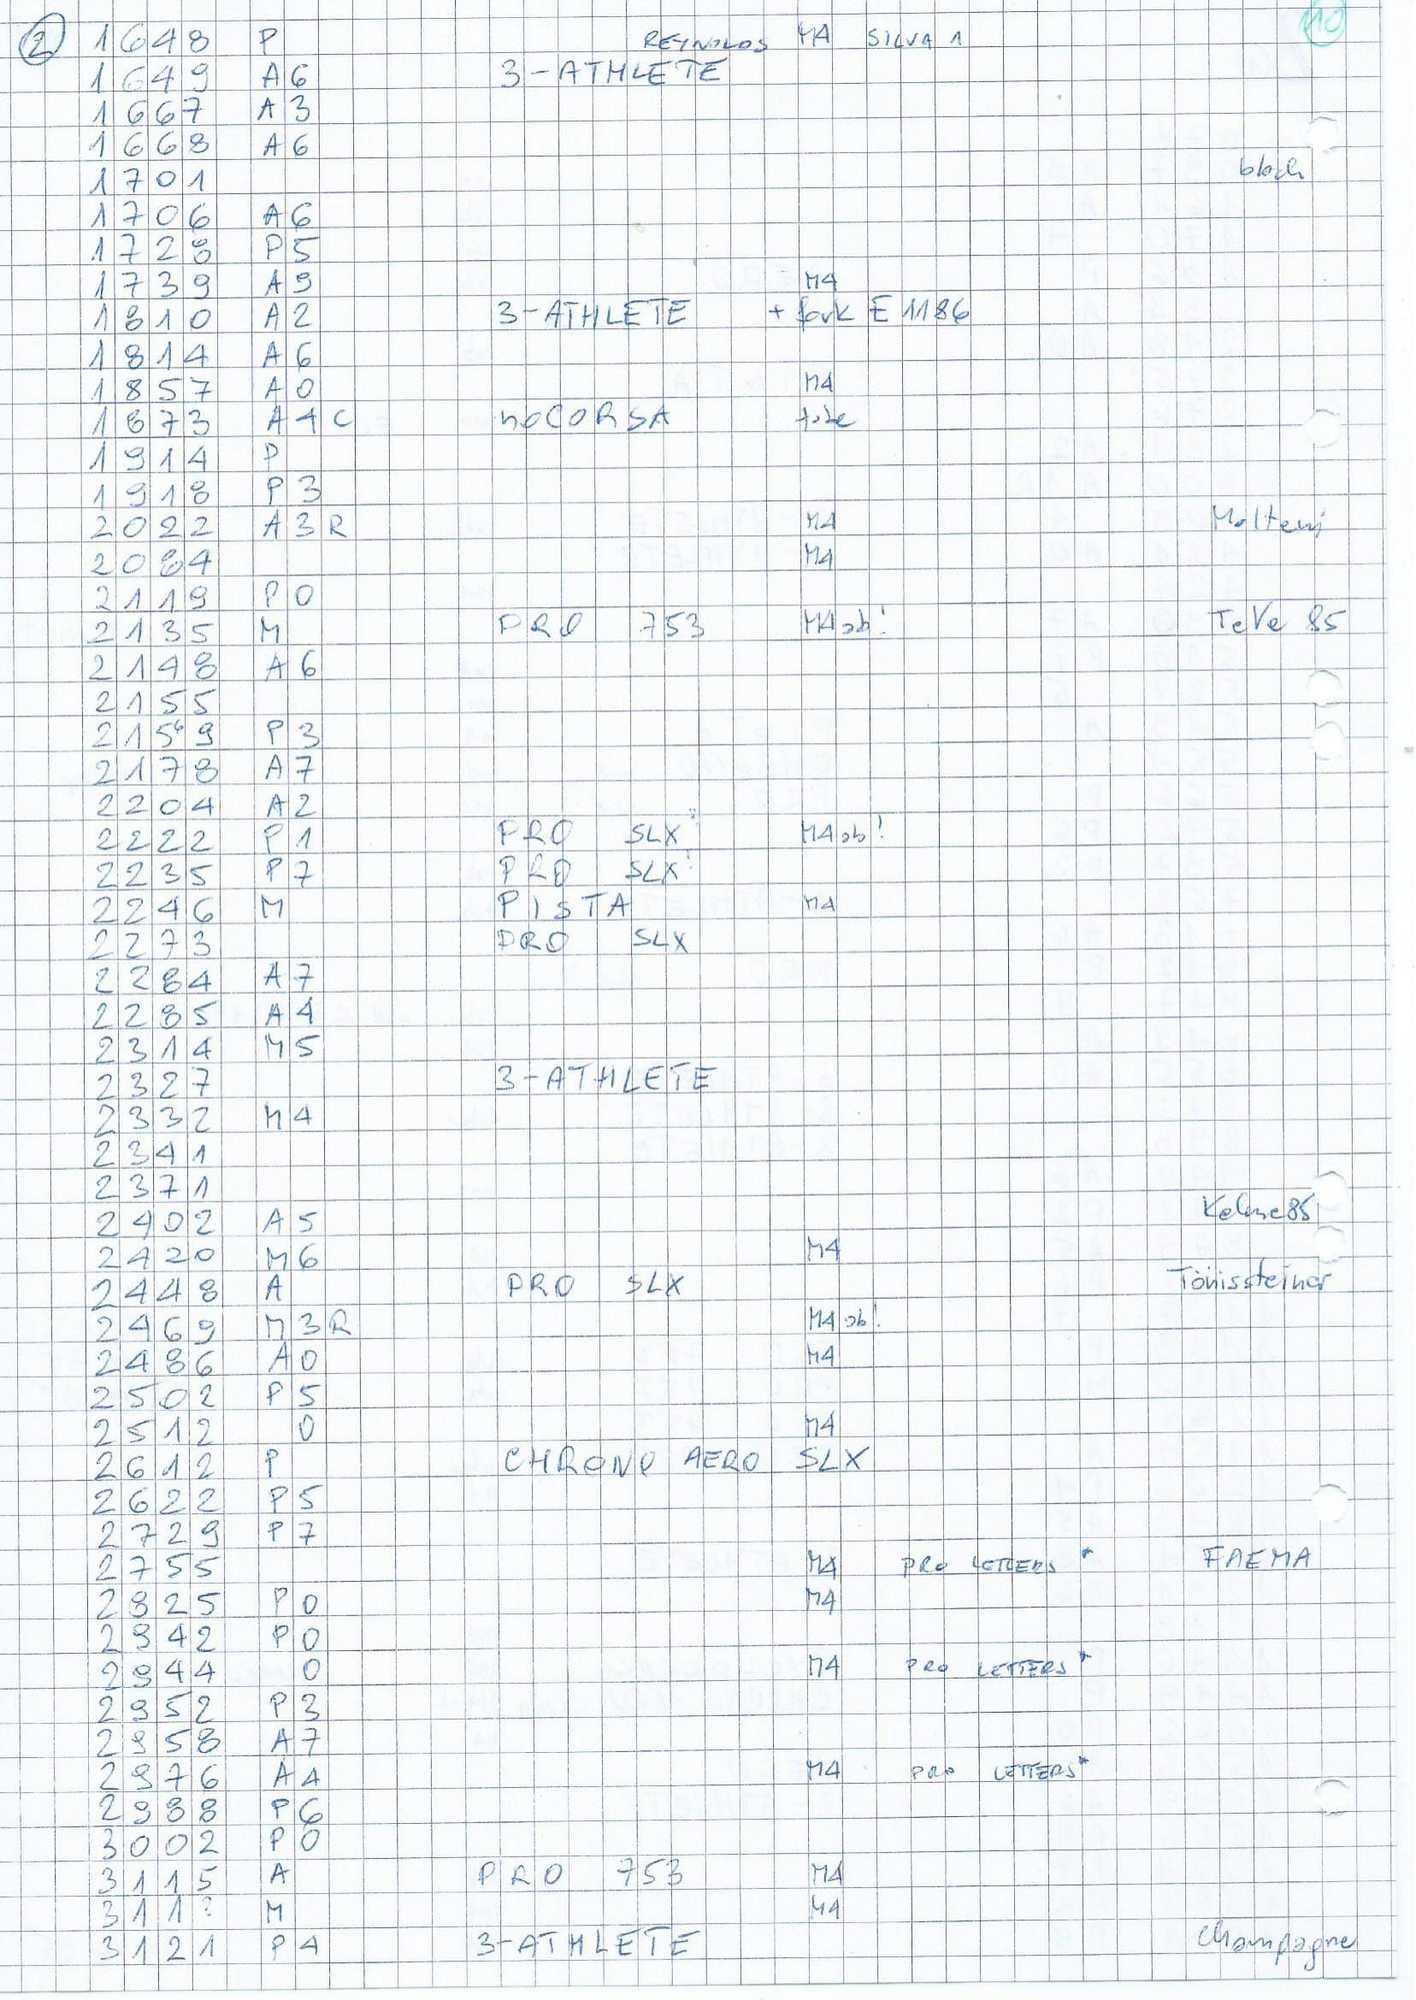 2 1648 P REYNOLDS M4 SILVA 1 10
1649 A6 3-ATHLETE
1667 A3
1668 A6
1701 black
1706 A6
1728 P5
1739 A9 M4
1810 A2 3-ATHLETE + fork E 1186
1814 A6
1857 A0 M4
1873 A4C noCORSA tube
1914 P
1918 P3
2022 A3R M4 Molteni
2084 M4
2119 P0
2135 M PRO 753 M4ob! TeVe 85
2148 A6
2155
2159 P3
2178 A7
2204 A2
2222 P1 PRO SLX M4ob!
2235 P7 PRO SLX!
2246 M PISTA M4
2273 PRO SLX
2284 A7
2285 A4
2314 M5
2327 3-ATHLETE
2332 M4
2341
2371
2402 A5 Kelme85
2420 M6 M4
2448 A PRO SLX Tönissteiner
2469 M3R M4ob!
2486 A0 M4
2502 P5
2512 0 M4
2612 P CHRONO AERO SLX
2622 P5
2729 P7
2755 M4 PRO LETTERS * FAEMA
2925 P0 M4
2942 P0
2944 0 M4 PRO LETTERS *
2952 P3
2958 A7
2976 A4 M4 PRO LETTERS *
2988 P6
3002 P0
3115 A PRO 753 M4
311? M M4
3121 P4 3-ATHLETE Champagne